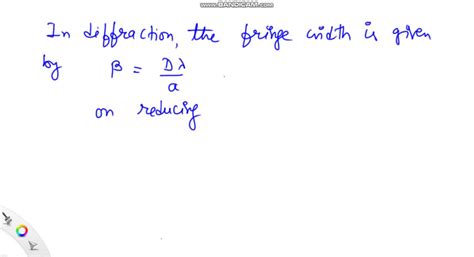 WWW.BANDICAM.COM
In diffraction, the fringe width is given
by β = Dλ/a
on reducing